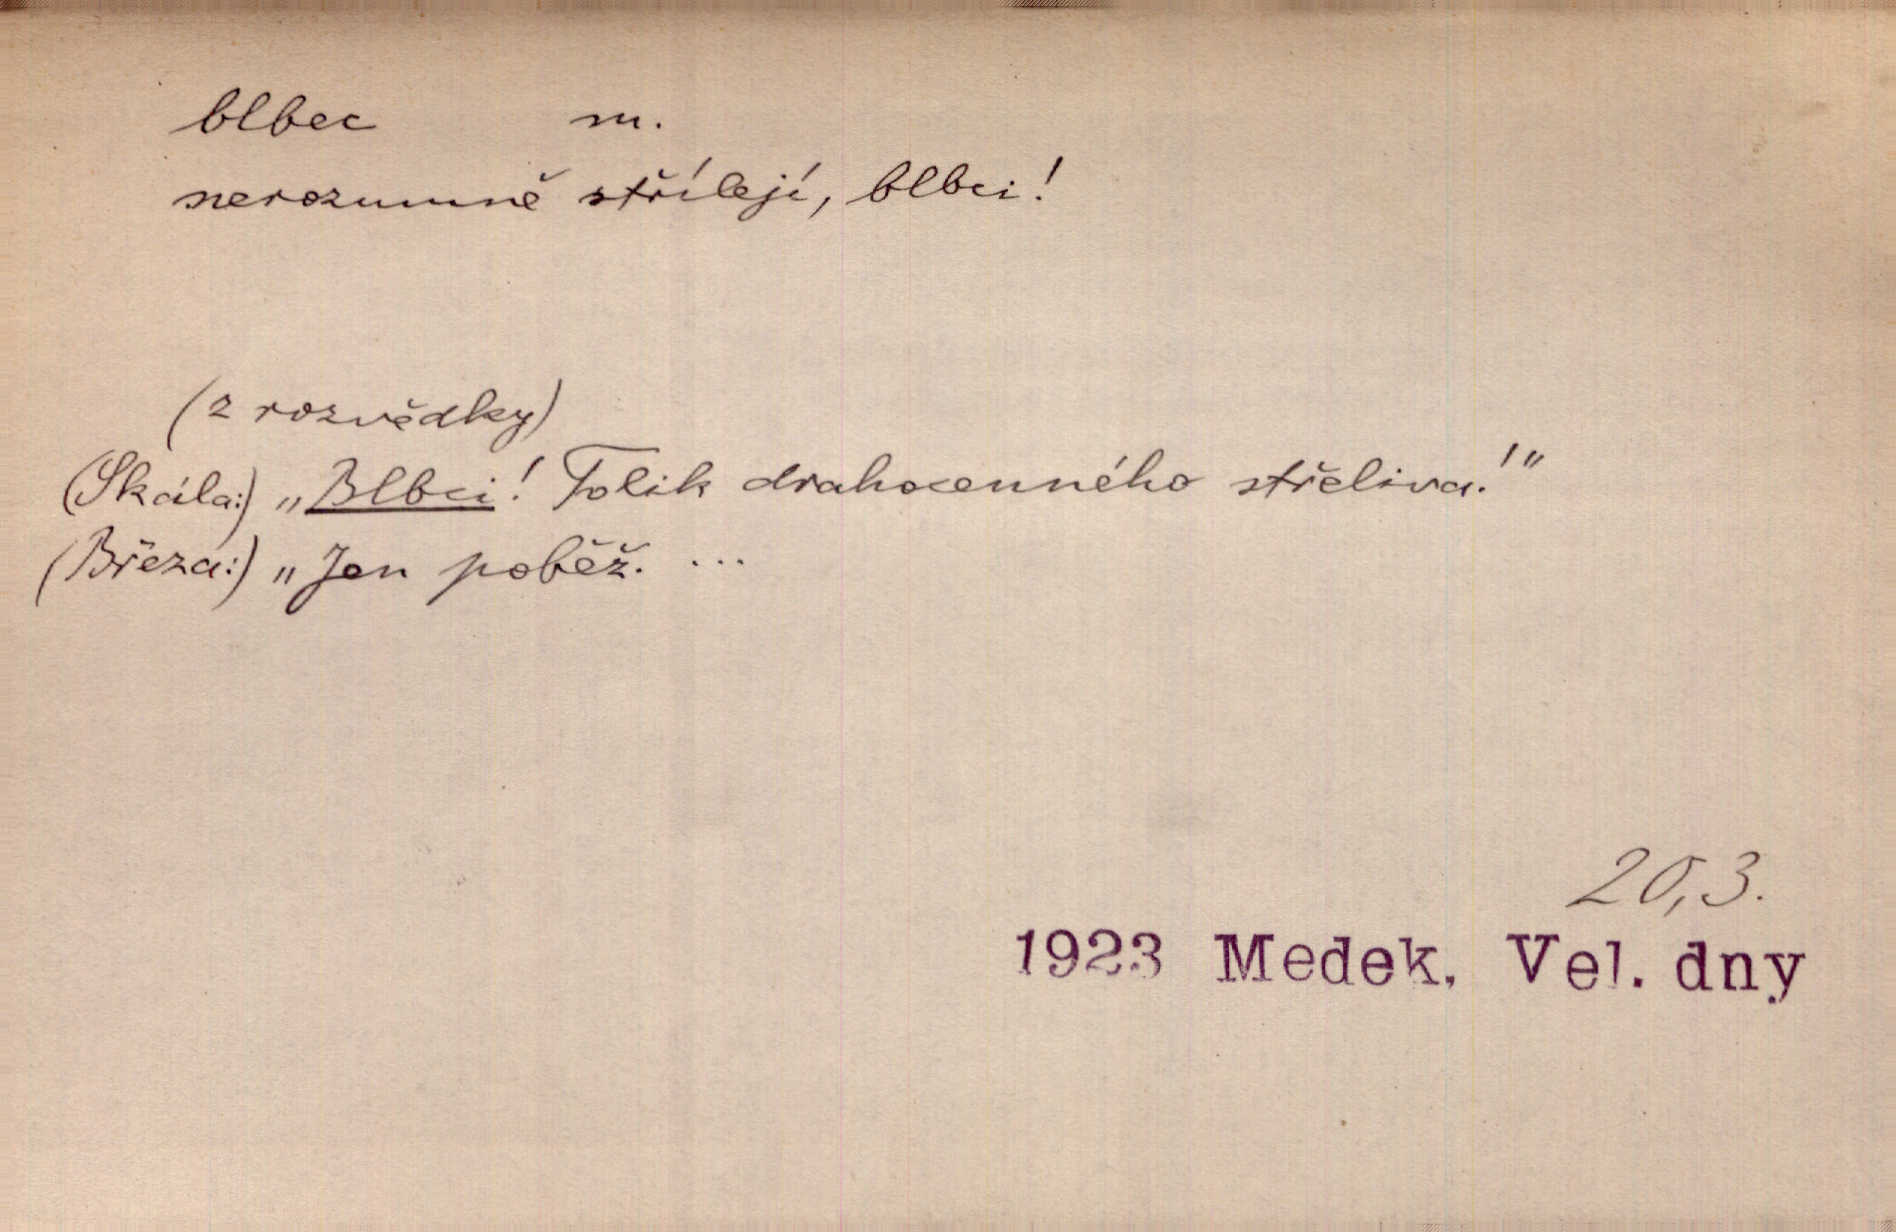 blbec m.
nerozumně střílejí, blbci!
(z rozvědky)
(Skála:) „Blbci! Tolik drahocenného střeliva!"
(Březa:) „Jen poběž. ...
20,3.
1923 Medek, Vel. dny